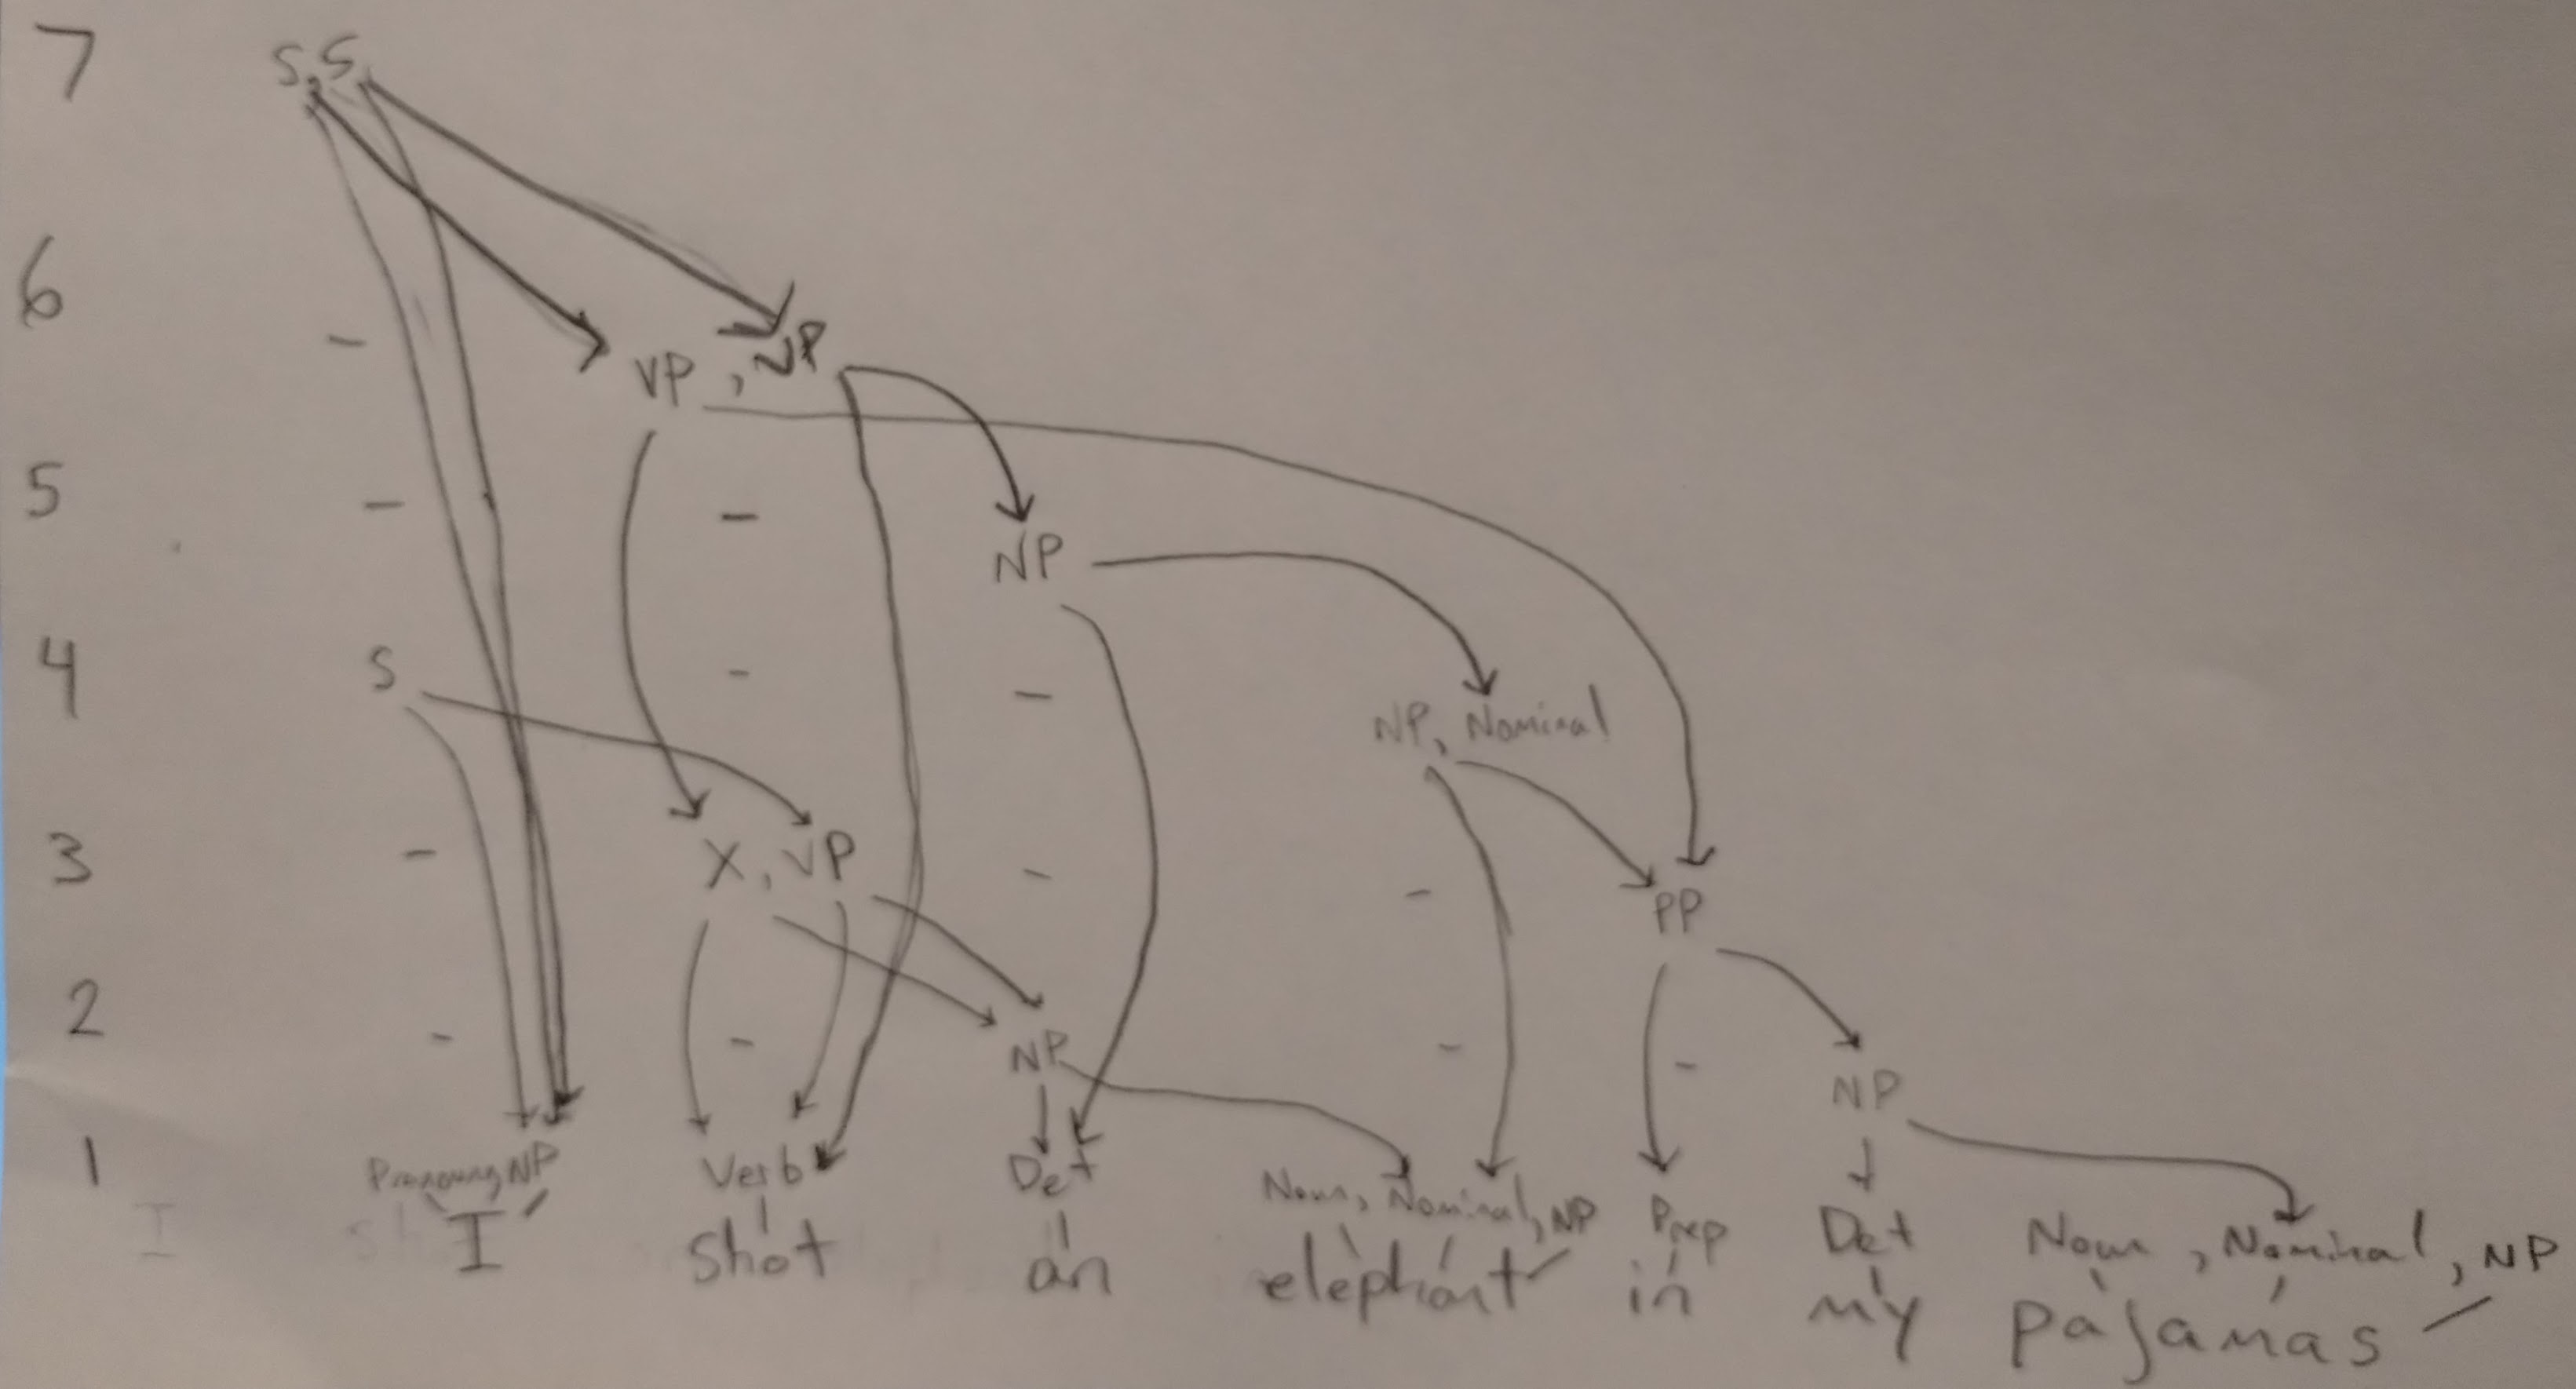 7 S, S
6 - VP, VP
5 - - NP
4 S - - NP, Nominal
3 - X, VP - - PP
2 - - NP - - NP
1 Pronoun, NP Verb Det Noun, Nominal, NP Prep Det Noun, Nominal, NP
I shot an elephant in my pajamas